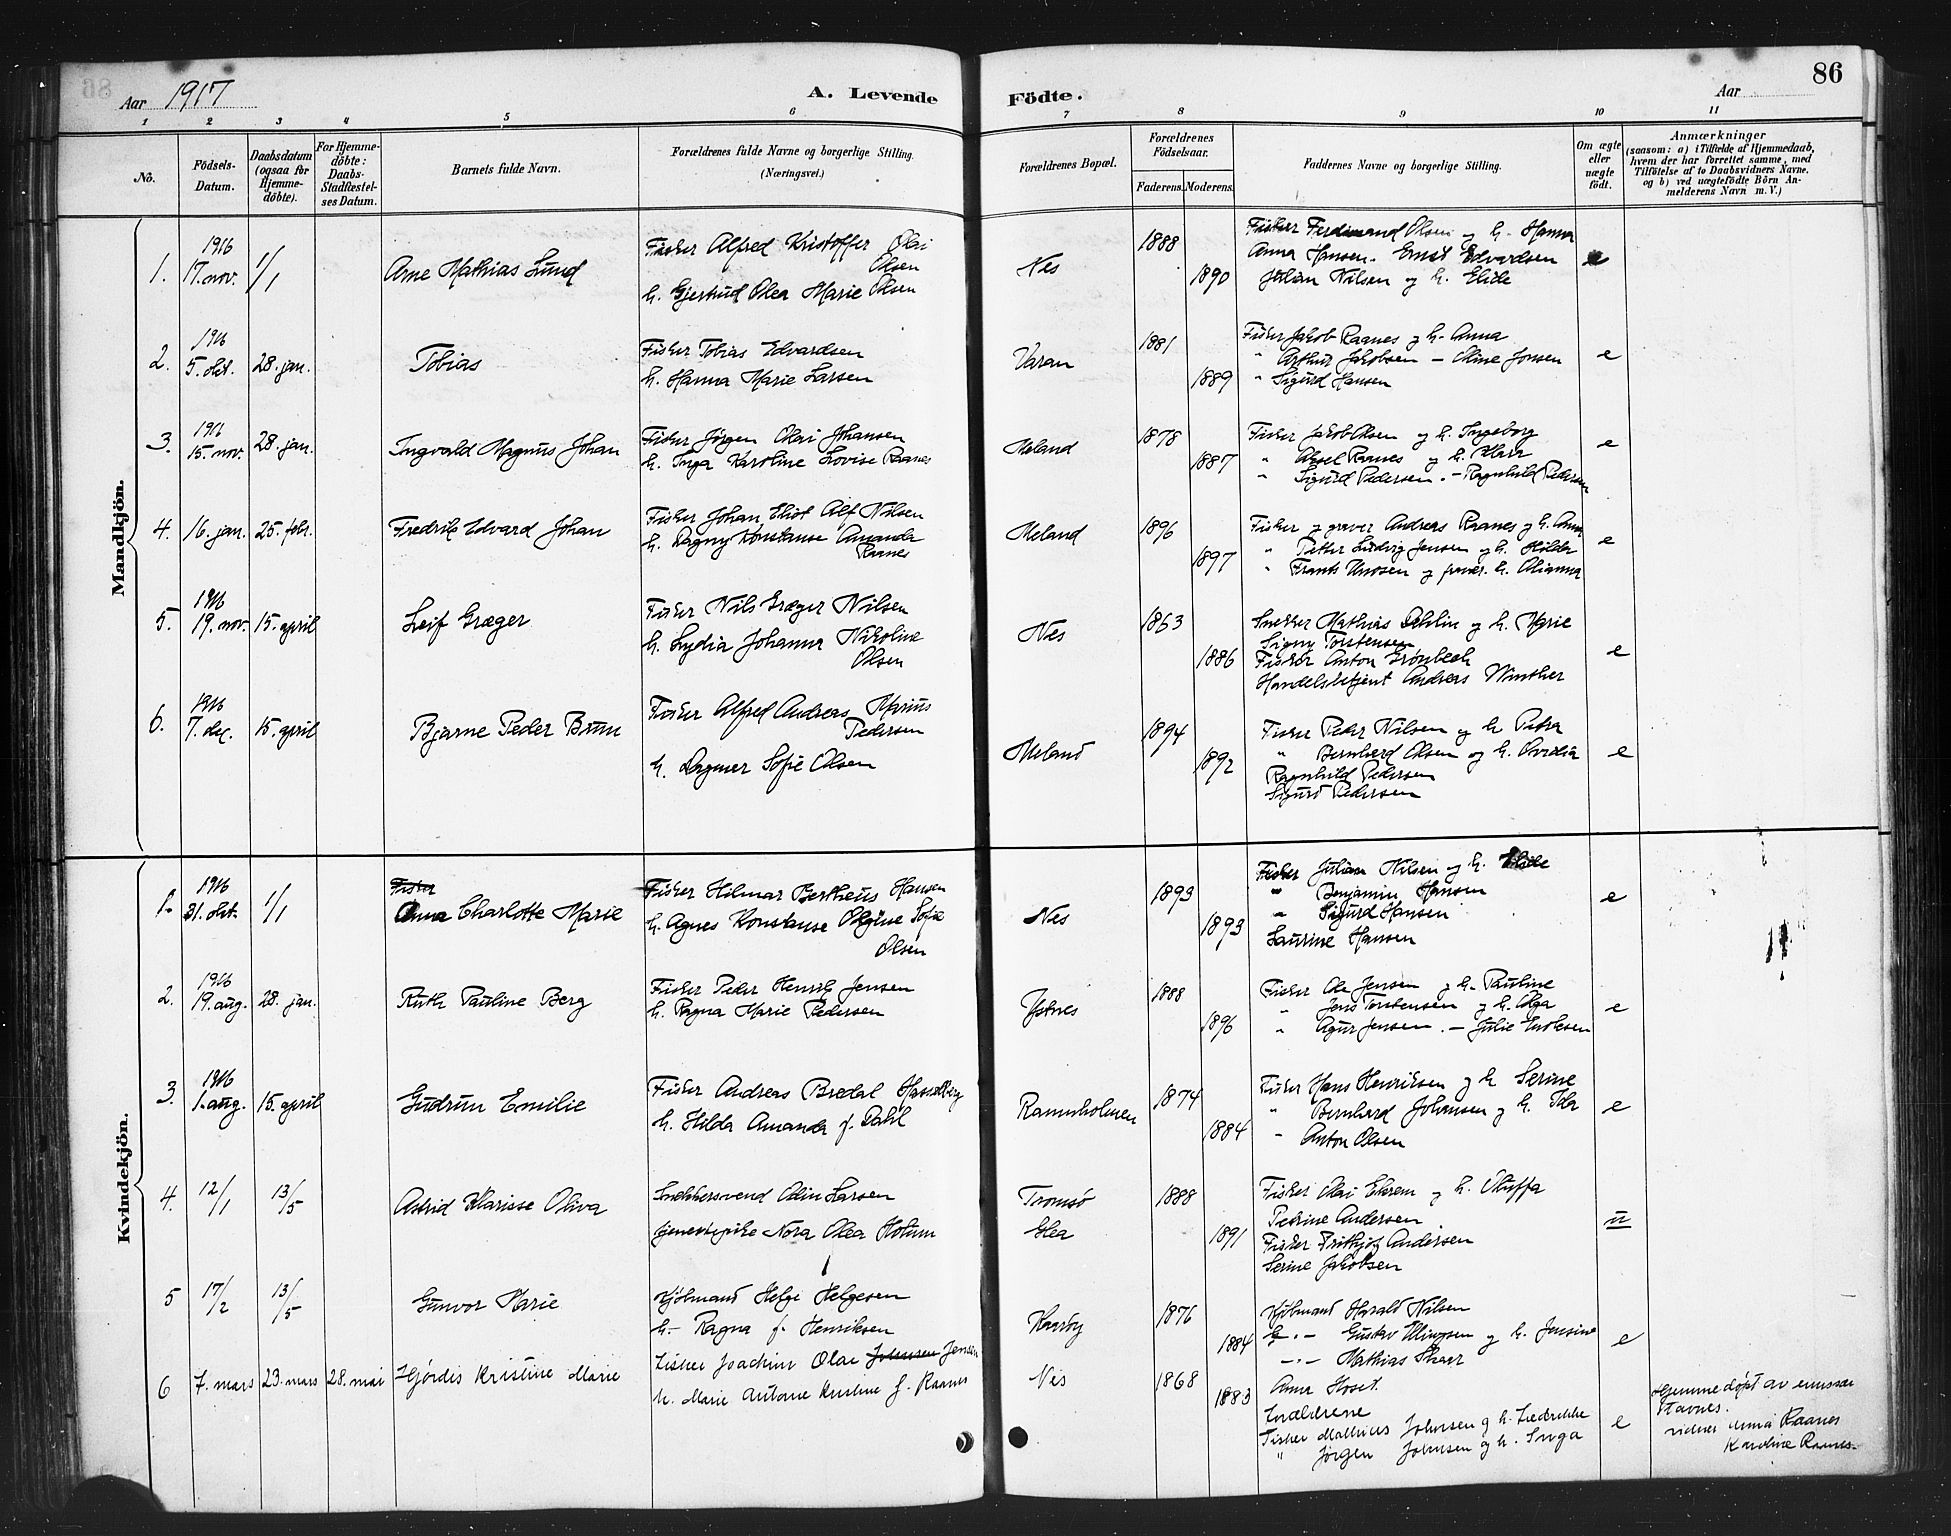 86
Aar 1917
A. Levende
Födte.
Aar
1 2 3 4 5 6
7 8 9 10 11
No.
Födsels-
Datum.
Daabsdatum
(ogsaa for
Hjemme-
döbte).
For Hjemme-
döbte:
Daabs-
Stadfæstel-
ses Datum.
Barnets fulde Navn.
Forældrenes fulde Navne og borgerlige Stilling.
(Næringsvei.)
Forældrenes Bopæl.
Forældrenes
Födselsaar.
Faderens. Moderens.
Faddernes Navne og borgerlige Stilling.
Om ægte
eller
uægte
födt.
Anmærkninger
(saasom: a) i Tilfælde af Hjemmedaab,
hvem der har forrettet samme, med
Tilföielse af to Daabsvidners Navne,
og b) ved uægtefödte Börn An-
melderens Navn m. V.)
Mandkjön.
1. 1916 17. nov. 1/1 Arne Mathias Lund
Fisker Alfred Kristoffer Olai
Olsen
h. Gjertrud Olea Marie Olsen
Nes 1888 1890
Fisker Ferdinand Olsen og h. Hanna
Anna Hansen. Ernst Edvardsen
Julian Nilsen og h. Elide
e
2. 1916 5. okt. 28. jan. Tobias
Fisker Tobias Edvardsen
h. Hanna Marie Larsen
1881 1889
Fisker Jakob Raanes og h. Anna
" Arthur Jakobsen – Oline Jensen
" Sigurd Hansen
e
3. 1916 15. nov. 28. jan. Ingvald Magnus Johan
Fisker Jørgen Olai Johansen
h. Inga Karoline Lovise Raanes
Meland 1878 1887
Fisker Jakob Olsen og h. Ingeborg
" Aksel Raanes og h.
" Sigurd Pedersen. – Ragnhild Pedersen
e
4. 16. jan. 25. febr. Fredrik Edvard Johan
Fisker Johan Eliot Alf Nilsen
h. Dagny Konstanse Amanda
Raanes
Meland 1896 1897
Fisker og graver Andreas Raanes og h. Anna
" Pether Ludvig Jensen og h. Hilda
" Frants
e
5. 1916 19. nov. 15. april Leif Græger
Fisker Nils Græger Nilsen
h. Lydia Johanna Nikoline
Olsen
Nes 1863 1886
Snekker Mathias Dahlin og h. Marie
Signy Torstensen
Fisker Anton Grønbech
Handelsbetjent Andreas Winther
e
6. 1916 7. dec. 15. april Bjarne Peder Brun
Fisker Alfred Andreas Marius
Pedersen
h. Dagmar Sofie Olsen
Meland 1894 1892
Fisker Peder Nilsen og h Petra
" Bernhard Olsen og h.
Ragnhild Pedersen
Sigurd Pedersen
e
Kvindekjön.
1. 1916 31. okt. 1/1 Fisker
Anna Charlotte Marie
Fisker Hilmar Bertheus Hansen
h. Agnes Konstanse Olufine Sofie
Olsen
Nes 1893 1893
Fisker Julian Nilsen og h. Elide
" Benjamin Hansen
" Sigurd Hansen
Laurine Hansen
e
2. 1916 19. aug. 28. jan. Ruth Pauline Berg
Fisker Peder Henrik Jensen
h. Ragna Marie Pedersen
Ystnes 1888 1896
Fisker Ole Jensen og h. Pauline
" Jens Torstensen og h. Olga
" Jensen. – Julie
e
3. 1916 1. aug. 15. april Gudrun Emilie
Fisker Andreas Bredal Hamelberg
h. Hilda Amanda f. Dahl
Ramnholmen 1874 1884
Fisker Hans Henriksen og h Serine
" Bernhard Johansen og h. Ida
" Anton Olsen
e
4. 12/1 13/5 Astrid Klarisse Oliva
Snekkersvend Odin Larsen
tjenestepike Nora Olea Hotum
Tromsø
1888 1891
Fisker Olai og h. Oluffa
Petrine Andersen
Fisker Fritjof Andersen
Serine Jakobsen
u
5 17/2 13/5 Gunvor Marie
Kjøbmand Helge Helgesen
h. – Ragna f. Henriksen
1876 1884
Kjøbmand Harald Nilsen
h. – " – Gustav og h. Jensine
– " – Mathias
Anna
e
6 7. mars 23. mars 28. mai Hjørdis Kristine Marie
Fisker Joachim Olai Johansen Jensen
h. Marie Antone Kristine f. Raanes
Nes 1868 1883
Forældrene
Fisker Mathias Johansen og h. Fredrikke
" Jørgen Johansen og h. Inga
e
Hjemmedøpt av emissær
Stavnes.
vidner Anna Raanes
Karoline Raanes.